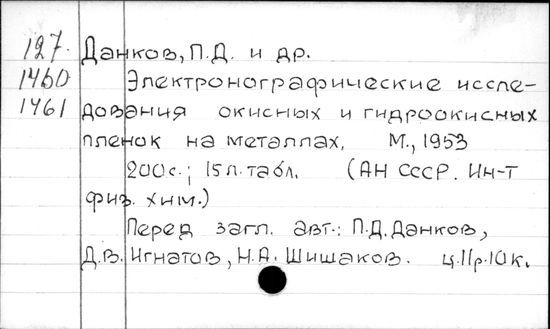 127. Данков, П.Д. и др.
1460 Электронографические иссле-
1461 дования окисных и гидроокисных
пленок на металлах. М., 1953
200с.; 15л. табл. (АН СССР. Ин-т
физ. хим.)
Перед загл. авт.: П.Д. Данков,
Д.В. Игнатов, Н.А. Шишаков. ц. 11р. 10к.